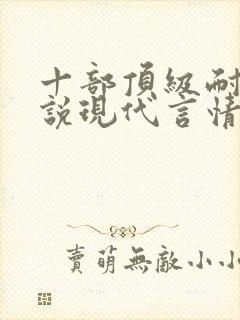 十部頂級耐
說現代言情
賣萌無敵小小